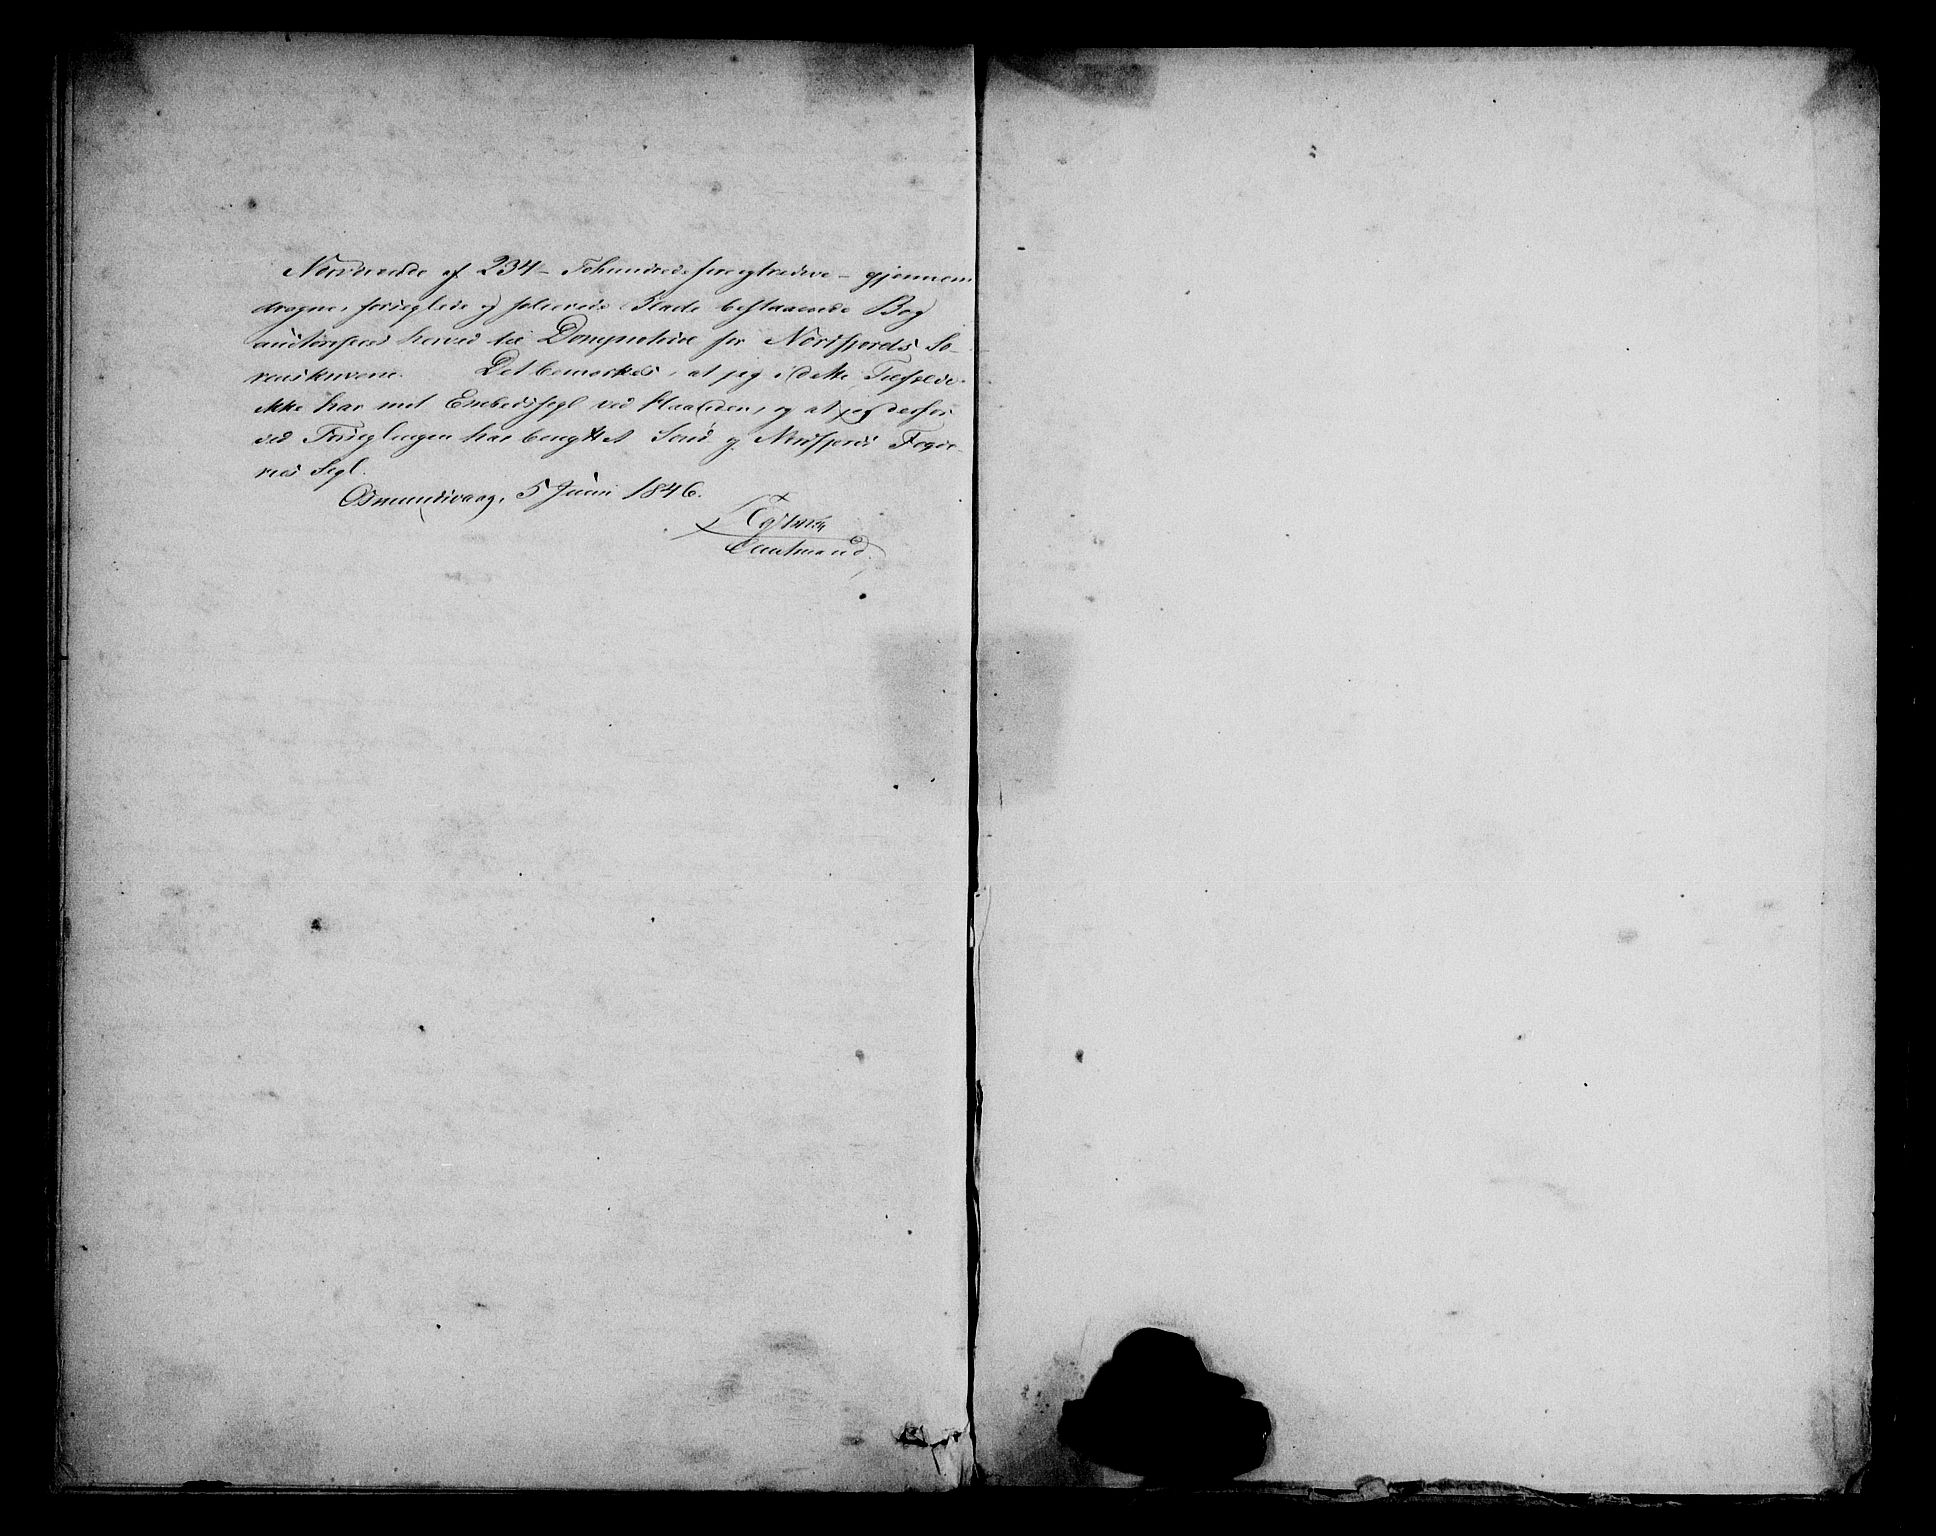 Nærværende af 234 – Tohundrede fire og tredive – gjennem
dragne, forseglede og folierede Blade bestaaende Bog
autoriseres herved til Domprotocol for Nordfjords So-
renskriverie. Det bemærkes, at jeg i dette Tilfælde
ikke har mit Embedssegl ved Haanden, og at jeg derfor
ved Forseglingen har benyttet Sønd og Nordfjords Fogde-
ries Segl.
Osmundsvaag, 5 Juni 1846.
Constitueret
Amtmand.